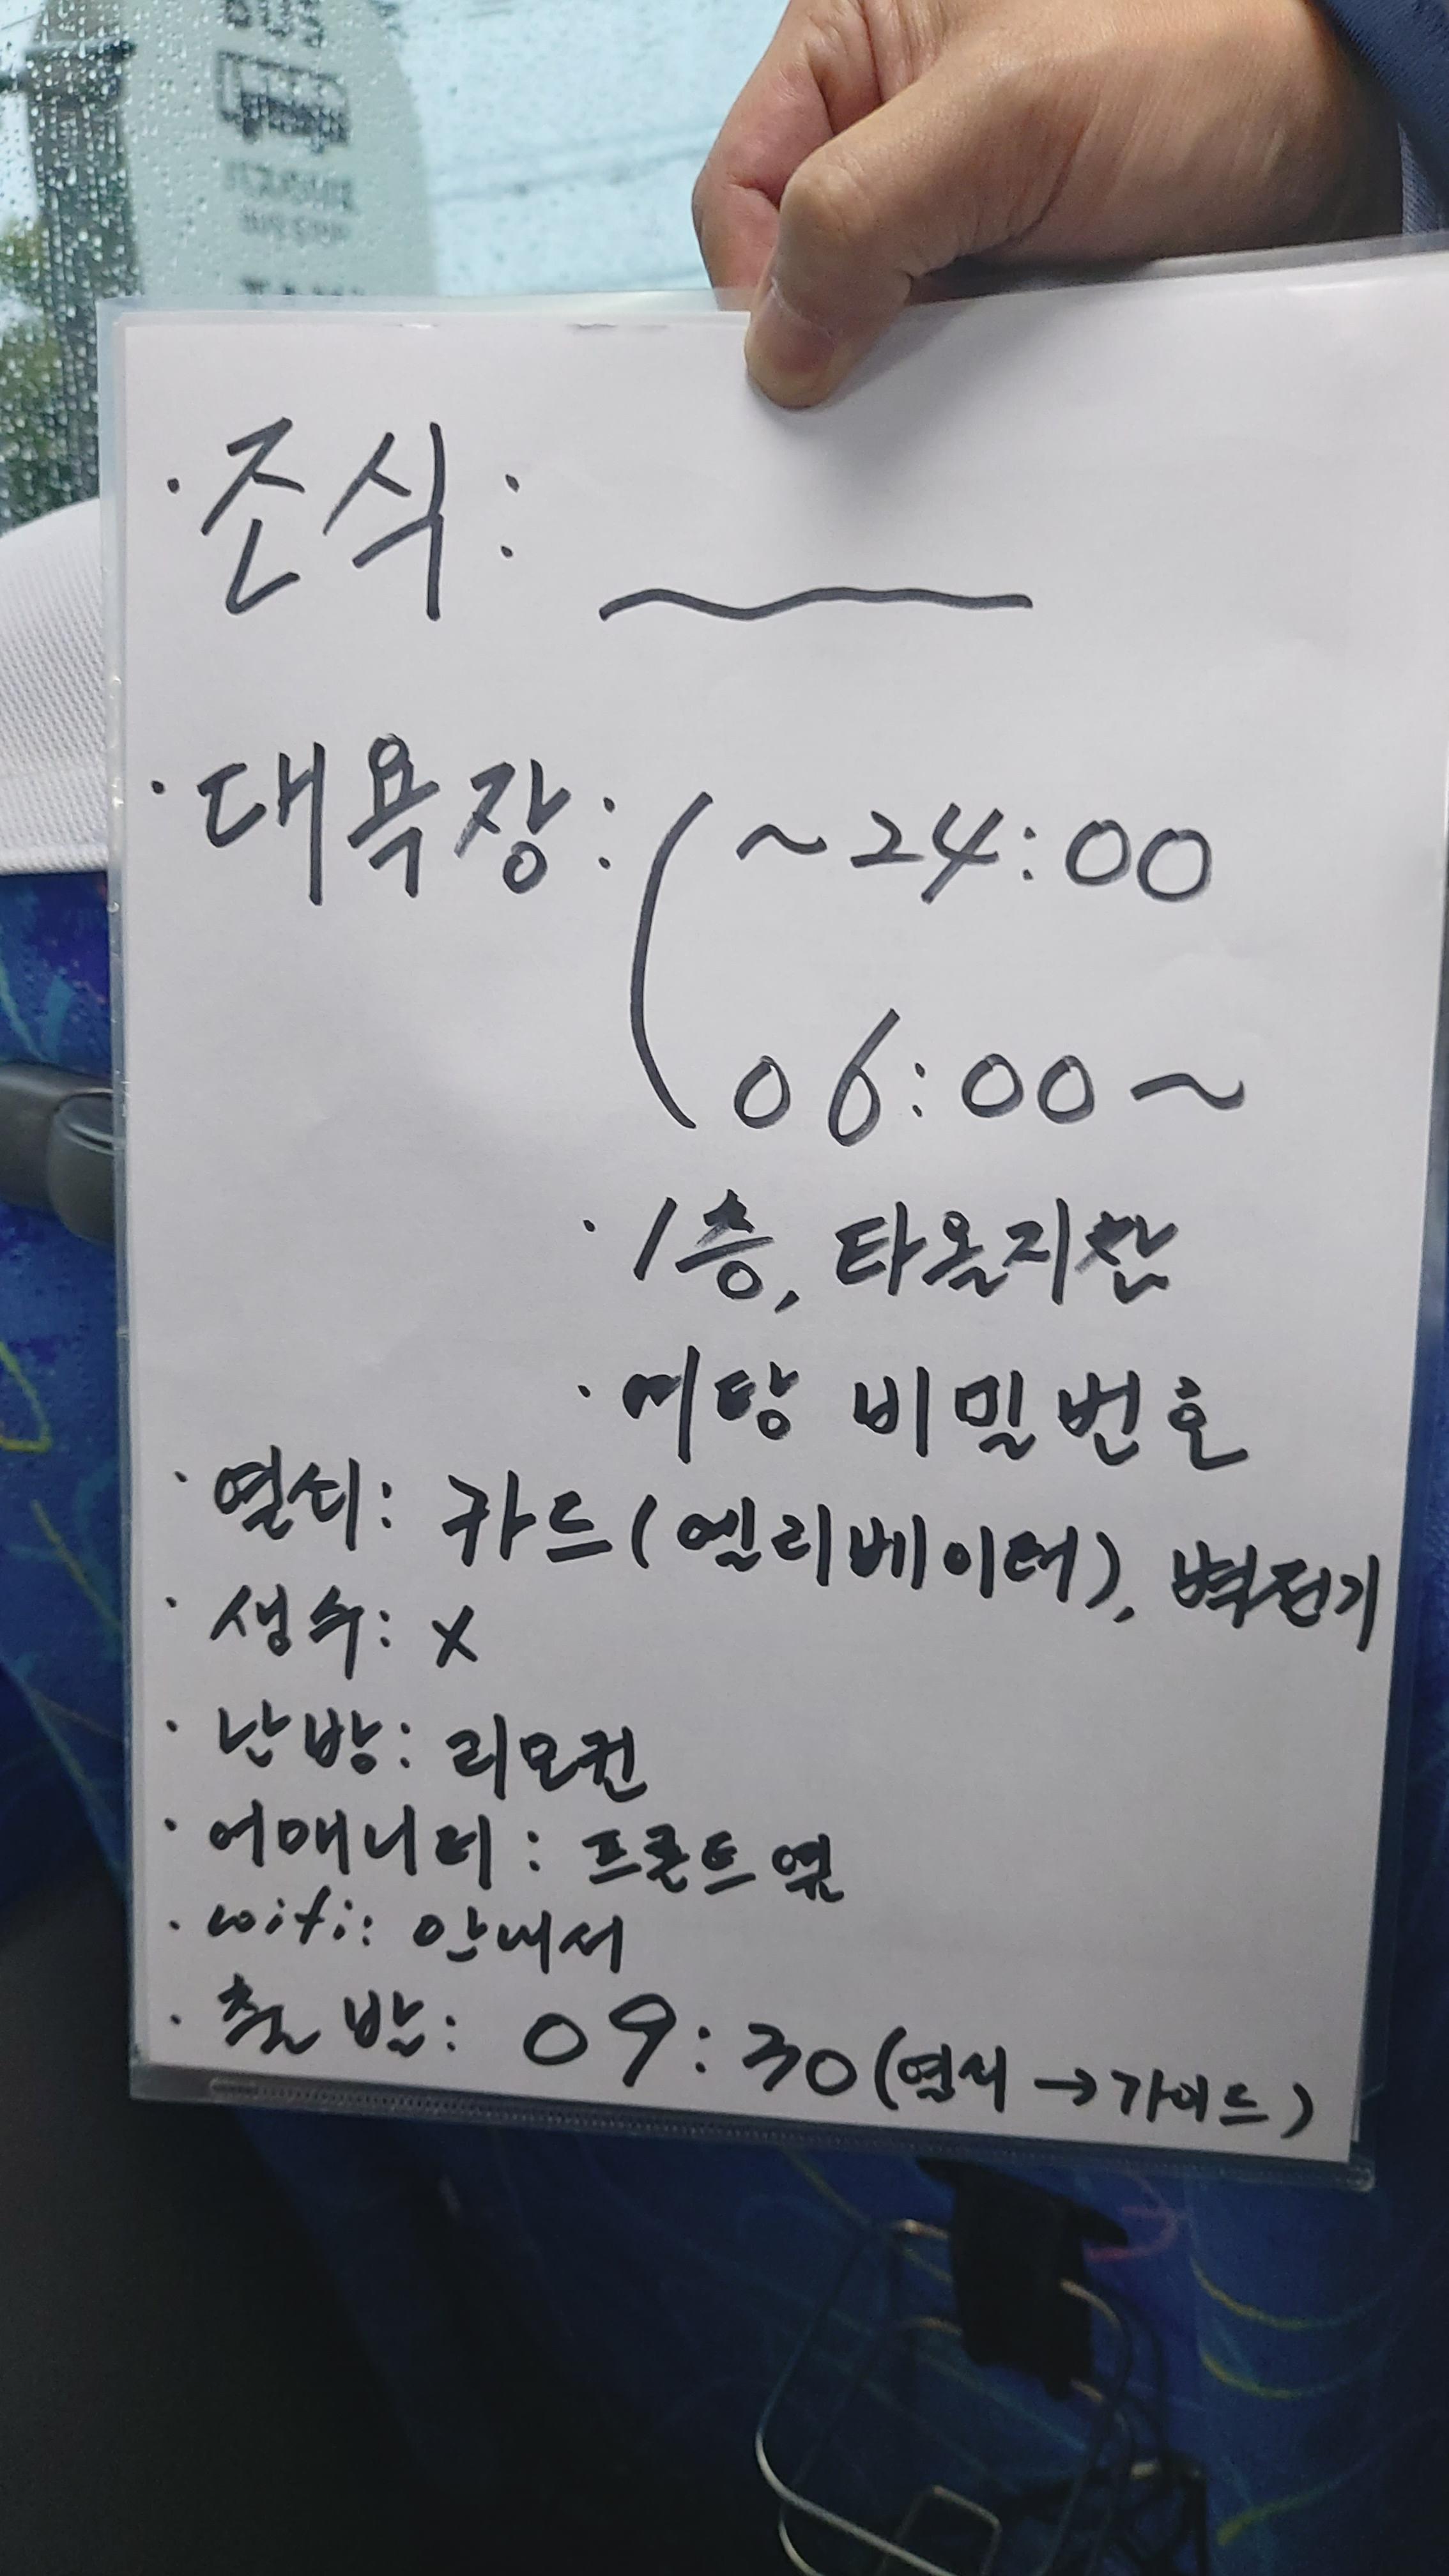 BUS
· 조식:
· 대욕장: ( ~24:00
06:00~
· 1층, 타올지참
· 여탕 비밀번호
· 열쇠: 카드(엘리베이터), 벽전기
· 생수: X
· 난방: 리모컨
· 어매니티: 프론트 옆
· wifi: 안내서
· 출발: 09:30 (열쇠 → 가이드)